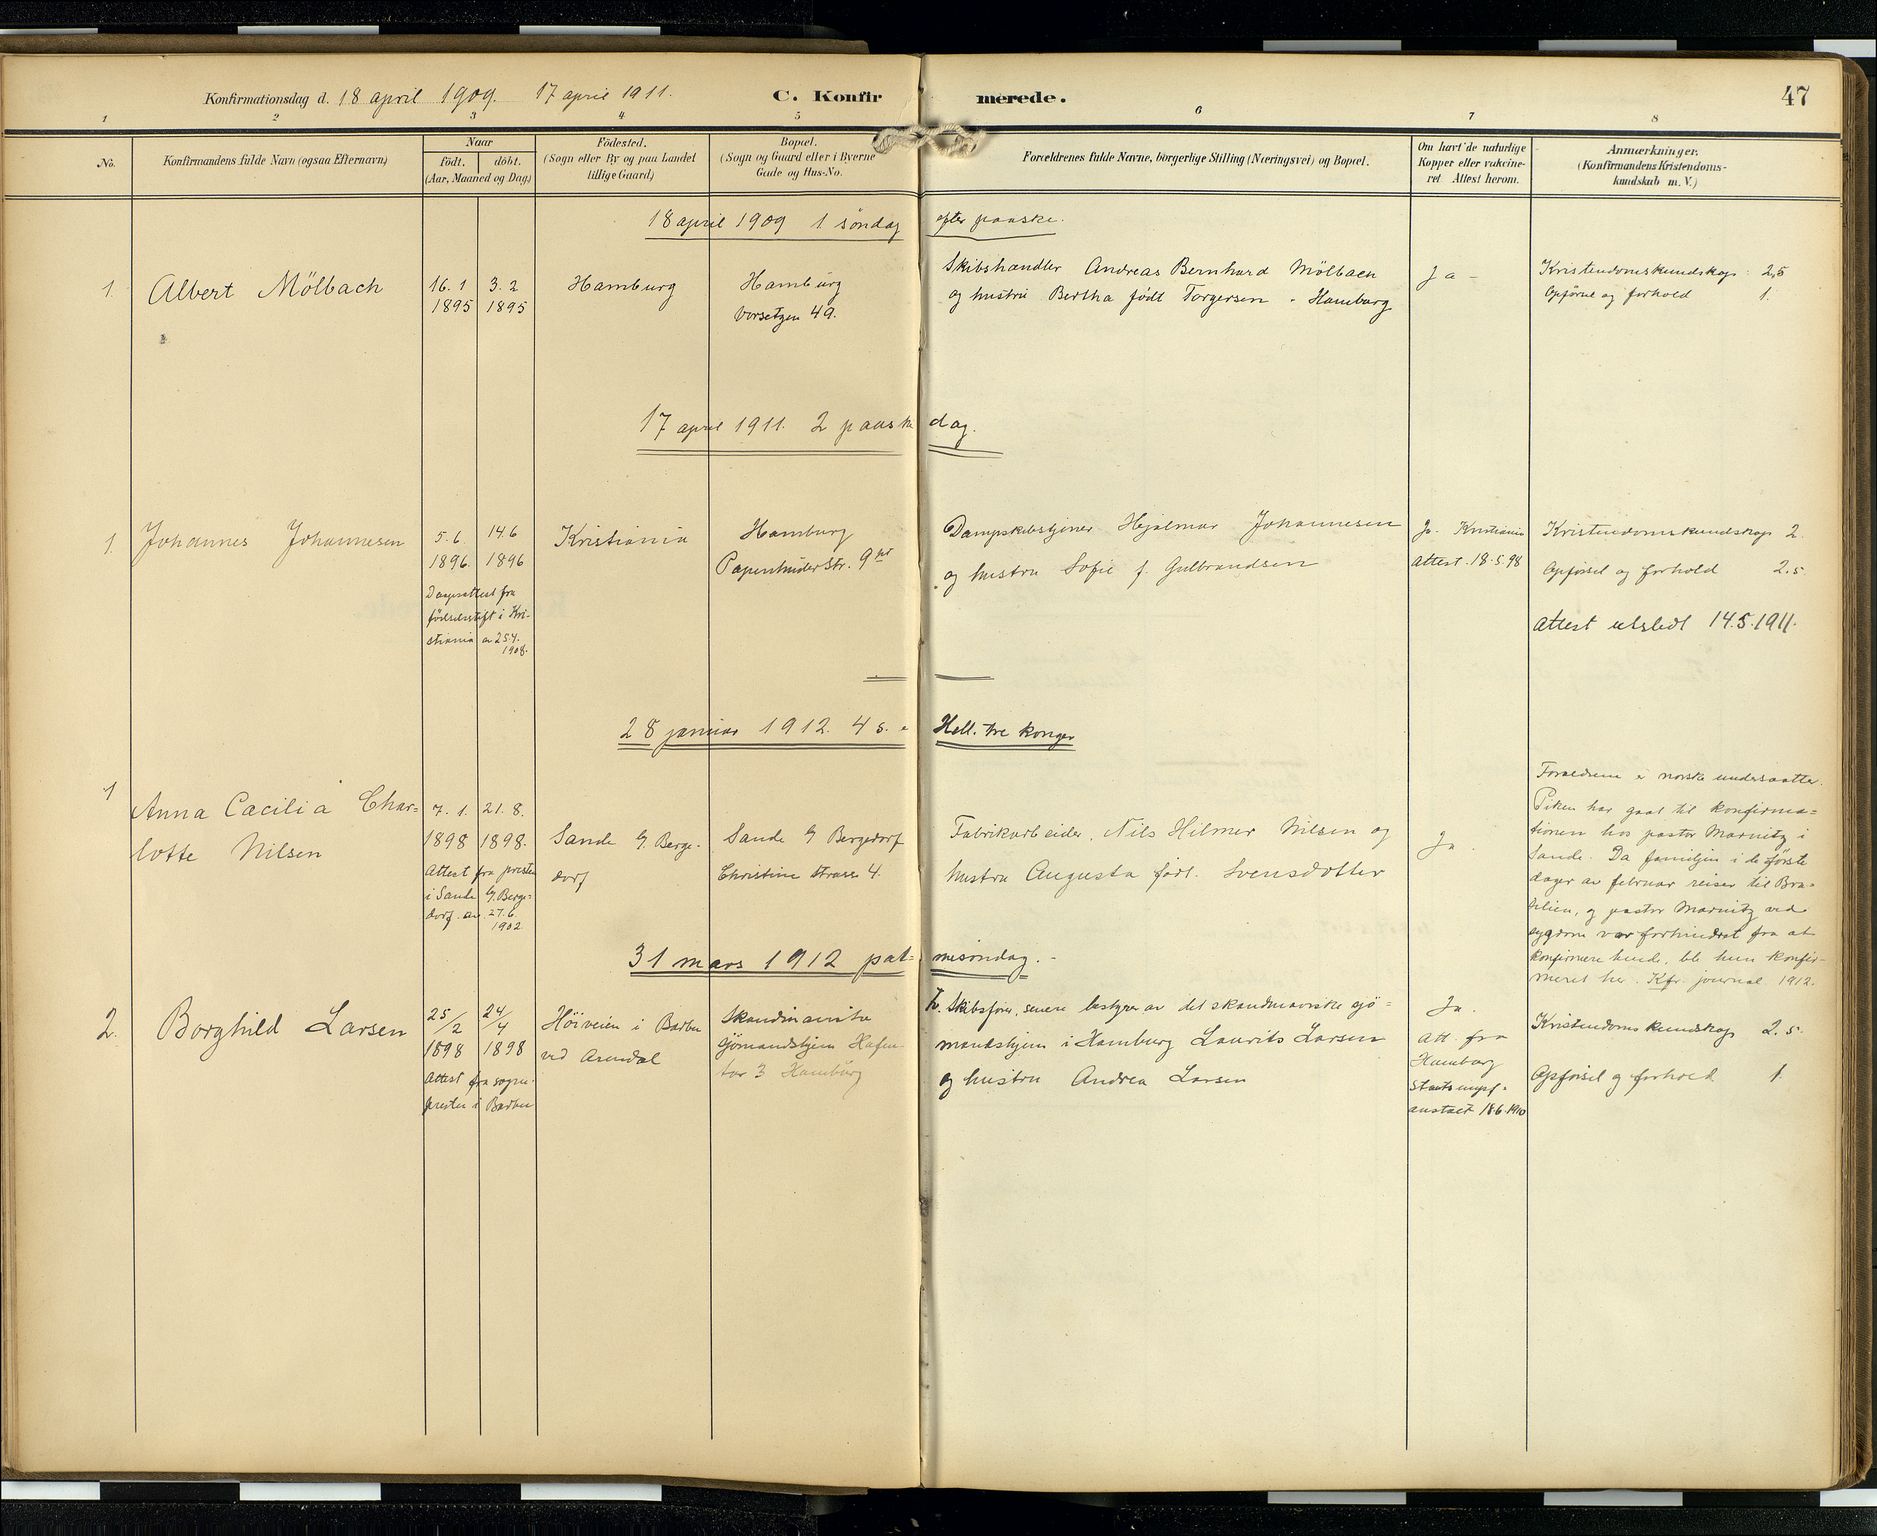 Konfirmationsdag d. 18 april 1909. 17 april 1911. C. Konfirmerede. 47
1 2 3 4 5 6 7 8
No.
Konfirmandens fulde Navn (ogsaa Efternavn)
Naar
födt. döbt.
(Aar, Maaned og Dag)
Födested.
(Sogn eller By og paa Landet
tillige Gaard)
Bopæl.
(Sogn og Gaard eller i Byerne
Gade og Hus-No.
Forældrenes fulde Navne, borgerlige Stilling (Næringsvei) og Bopæl.
Om havt de naturlige
Kopper eller vakcine-
ret Attest herom.
Anmærkninger.
(Konfirmandens Kristendoms-
kundskab m. V.)
18 april 1909 1. søndag efter paaske.
1. Albert Mölbach
16.1 3.2
1895 1895
Hamburg
Hamburg
Vorsetzen 49.
Skibshandler Andreas Bernhard Mölbach
og hustru Bertha født Torgersen - Hamburg
Ja -
Kristendomskundskap: 2,5
Opførsel og forhold 1.
17 april 1911. 2 paaskedag.
1. Johannes Johannesen
5.6. 14.6
1896. 1896
Daapsattest fra
fødselsstift i Kri-
stiania av 25.4.
1908.
Kristiania
Hamburg
Papenhuderstr. 9 pt
Dampskibstjener Hjalmar Johannesen
og hustru Sofie f. Gulbrandsen
Ja. Kristiania
Attest. 18.5.98
Kristendomskundskap 2.
Opførsel og forhold 2.5.
Attest utstedt 14.5.1911.
28 januar 1912. 4 s. e Hell. tre konger
1 Anna Cæcilia Char=
lotte Nilsen
7.1. 21.8.
1898 1898.
Attest fra presten
i Sande b/ Berge-
dorf. av. 27.6.
1902
Sande b/ Berge-
dorf
Sande b/ Bergedorf
Christine strasse 4.
Fabrikarbeider. Nils Hilmer Nilsen og
hustru Augusta født. Svensdotter
Ja.
Forældrene er norske undersaatter.
Piken har gaat til konfirma-
tionen hos pastor Marnitz i
Sande. Da familien i de første
dager av februar reiser til Bra-
silien, og pastor Marnitz ved
sygdom var forhindret fra at
konfirmere hende, ble hun konfir-
meret her. Kfr. journal 1912.
31 mars 1912 palmesøndag. -
2. Borghild Larsen
25/2 24/4
1898 1898
Attest fra sogne-
presten i Barbu
Höiveien i Barbu
ved Arendal
Skandinaviske
sjømandshjem Hafen-
tor 3 Hamburg
Fv. Skibsfører, senere bestyrer av det skandinaviske sjø=
mandshjem i Hamburg Laurits Larsen
og hustru Andrea Larsen
Ja.
Att. fra
Hamburg
Staatsimpf=
anstalt 18.6.1910
Kristendomskundskap 2.5.
Opførsel og forhold 1.